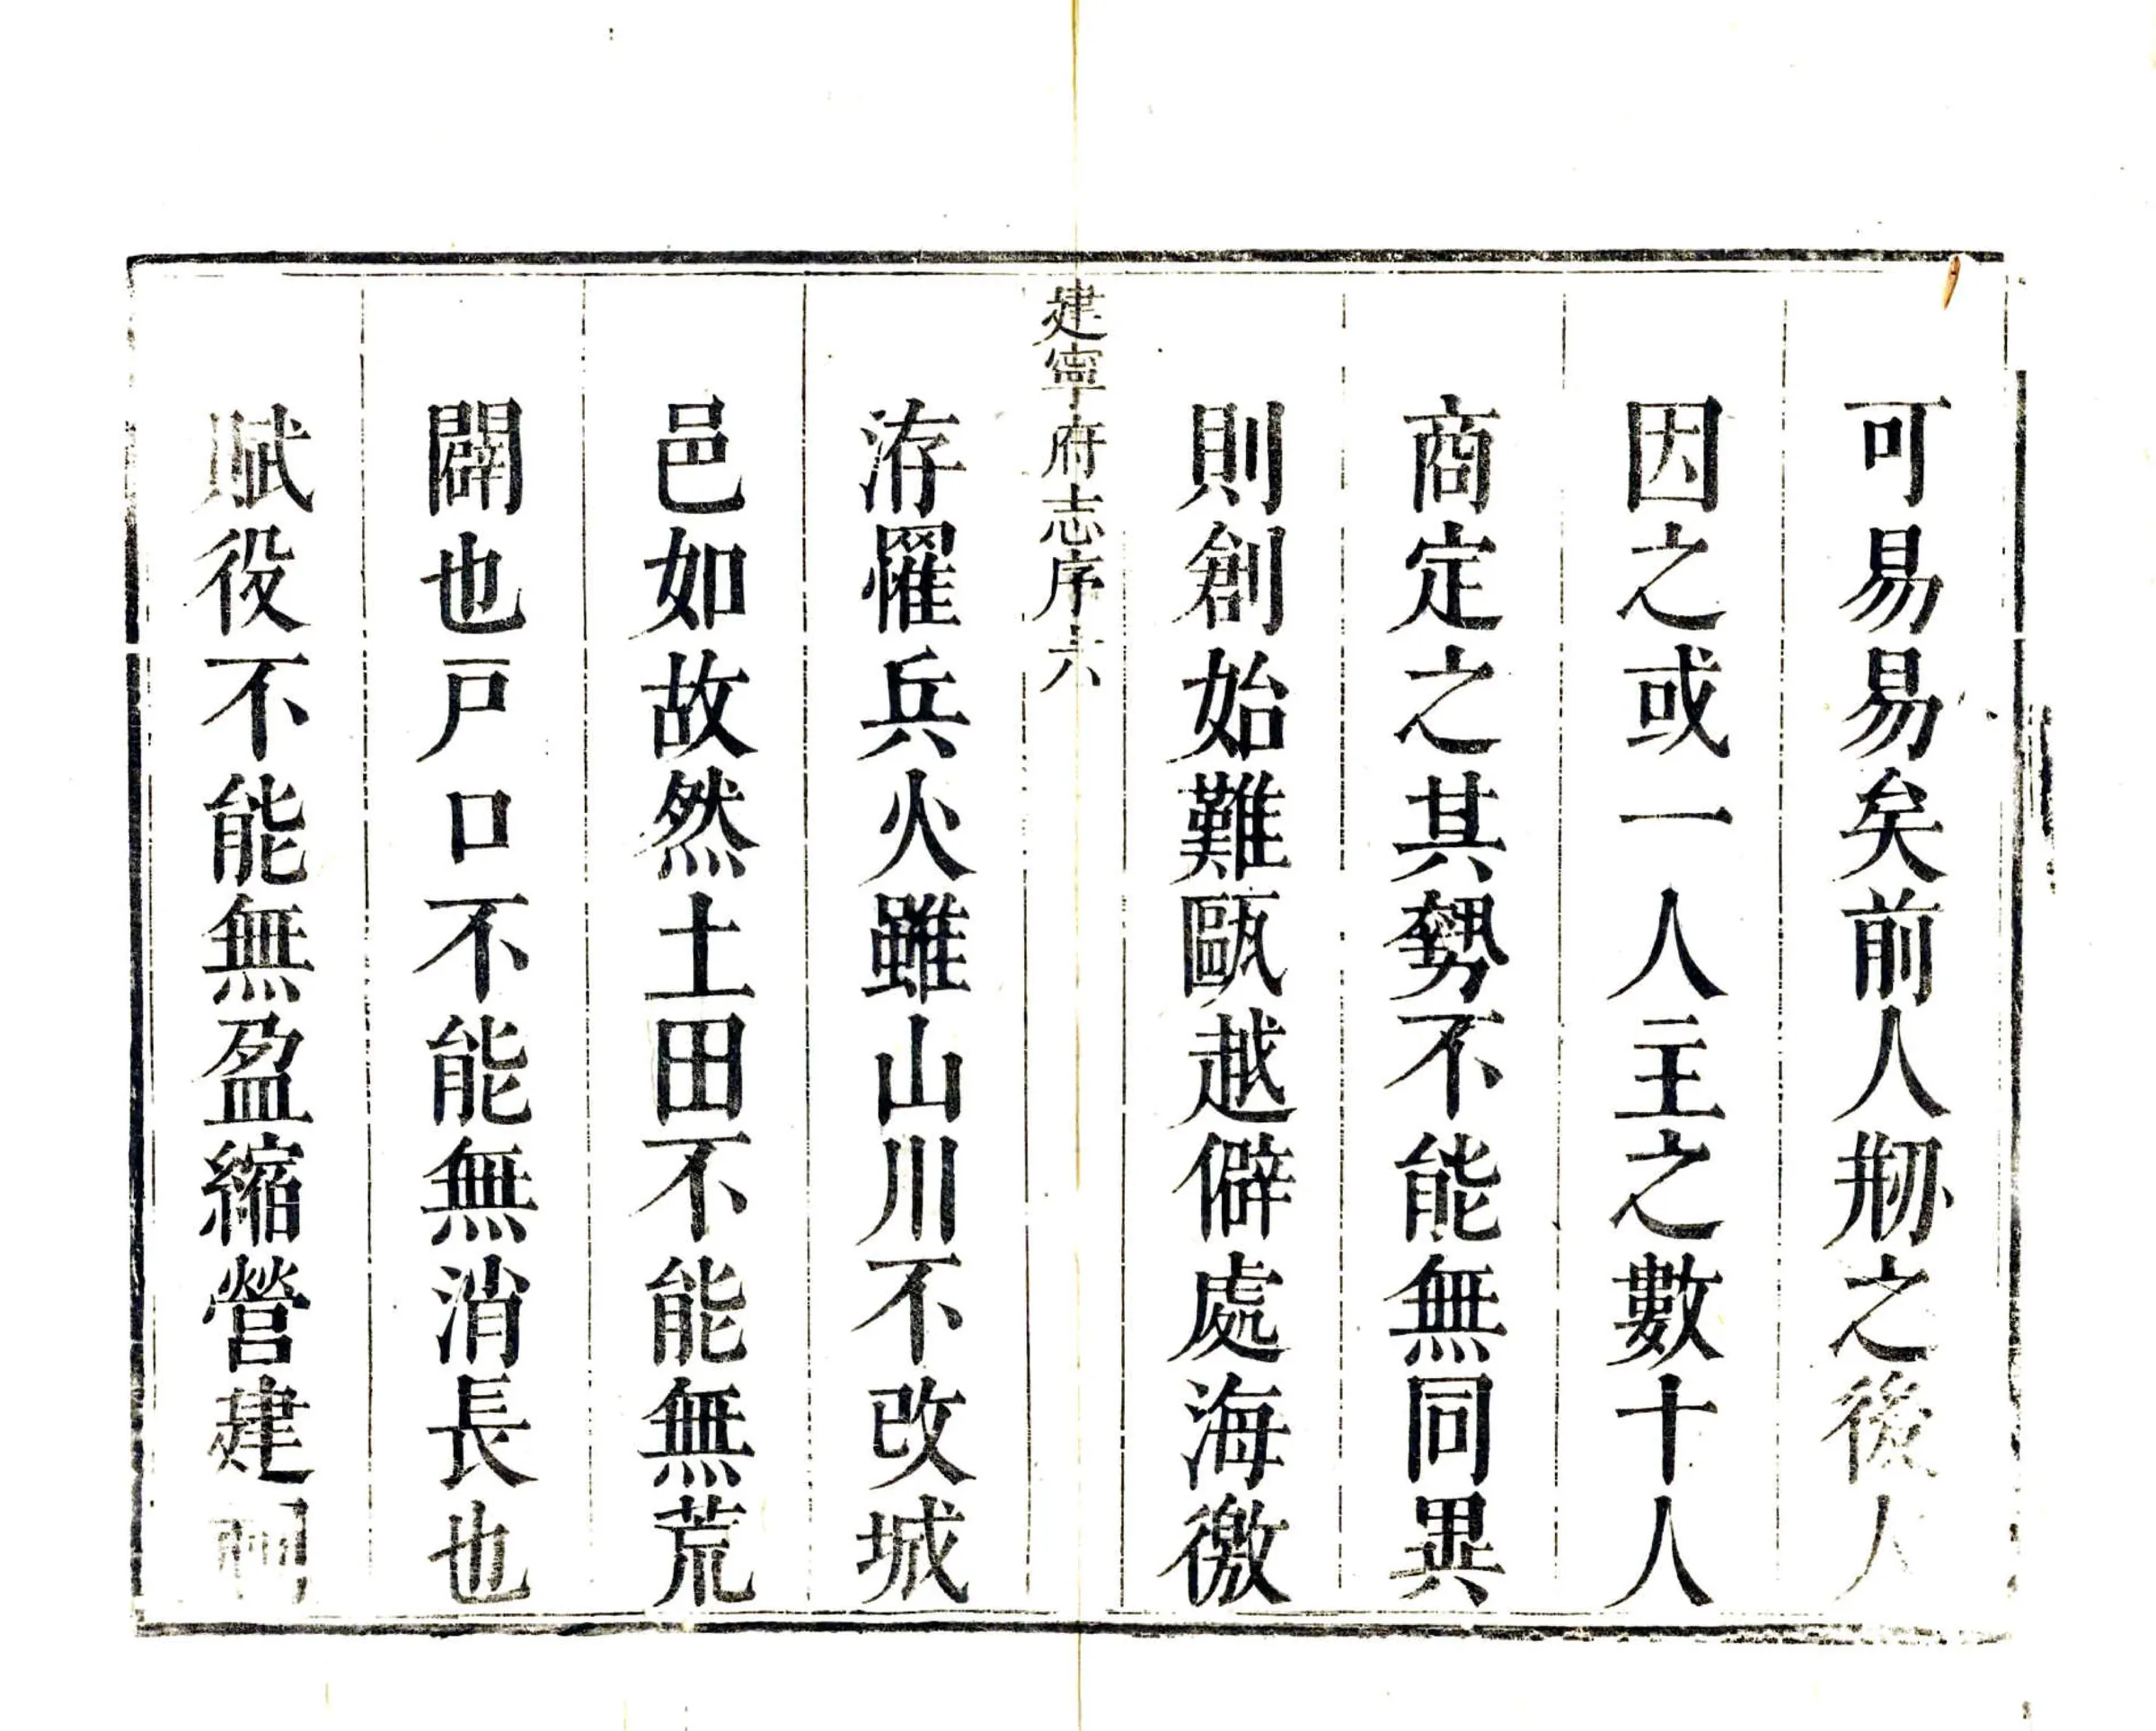 可易易矣前人剏之後人
因之或一人主之數十人
商定之其勢不能無同異
則創始難甌越僻處海徼
建寧府志序 六
洊罹兵火雖山川不改城
邑如故然土田不能無荒
闢也戸口不能無消長也
賦役不能無盈縮營建